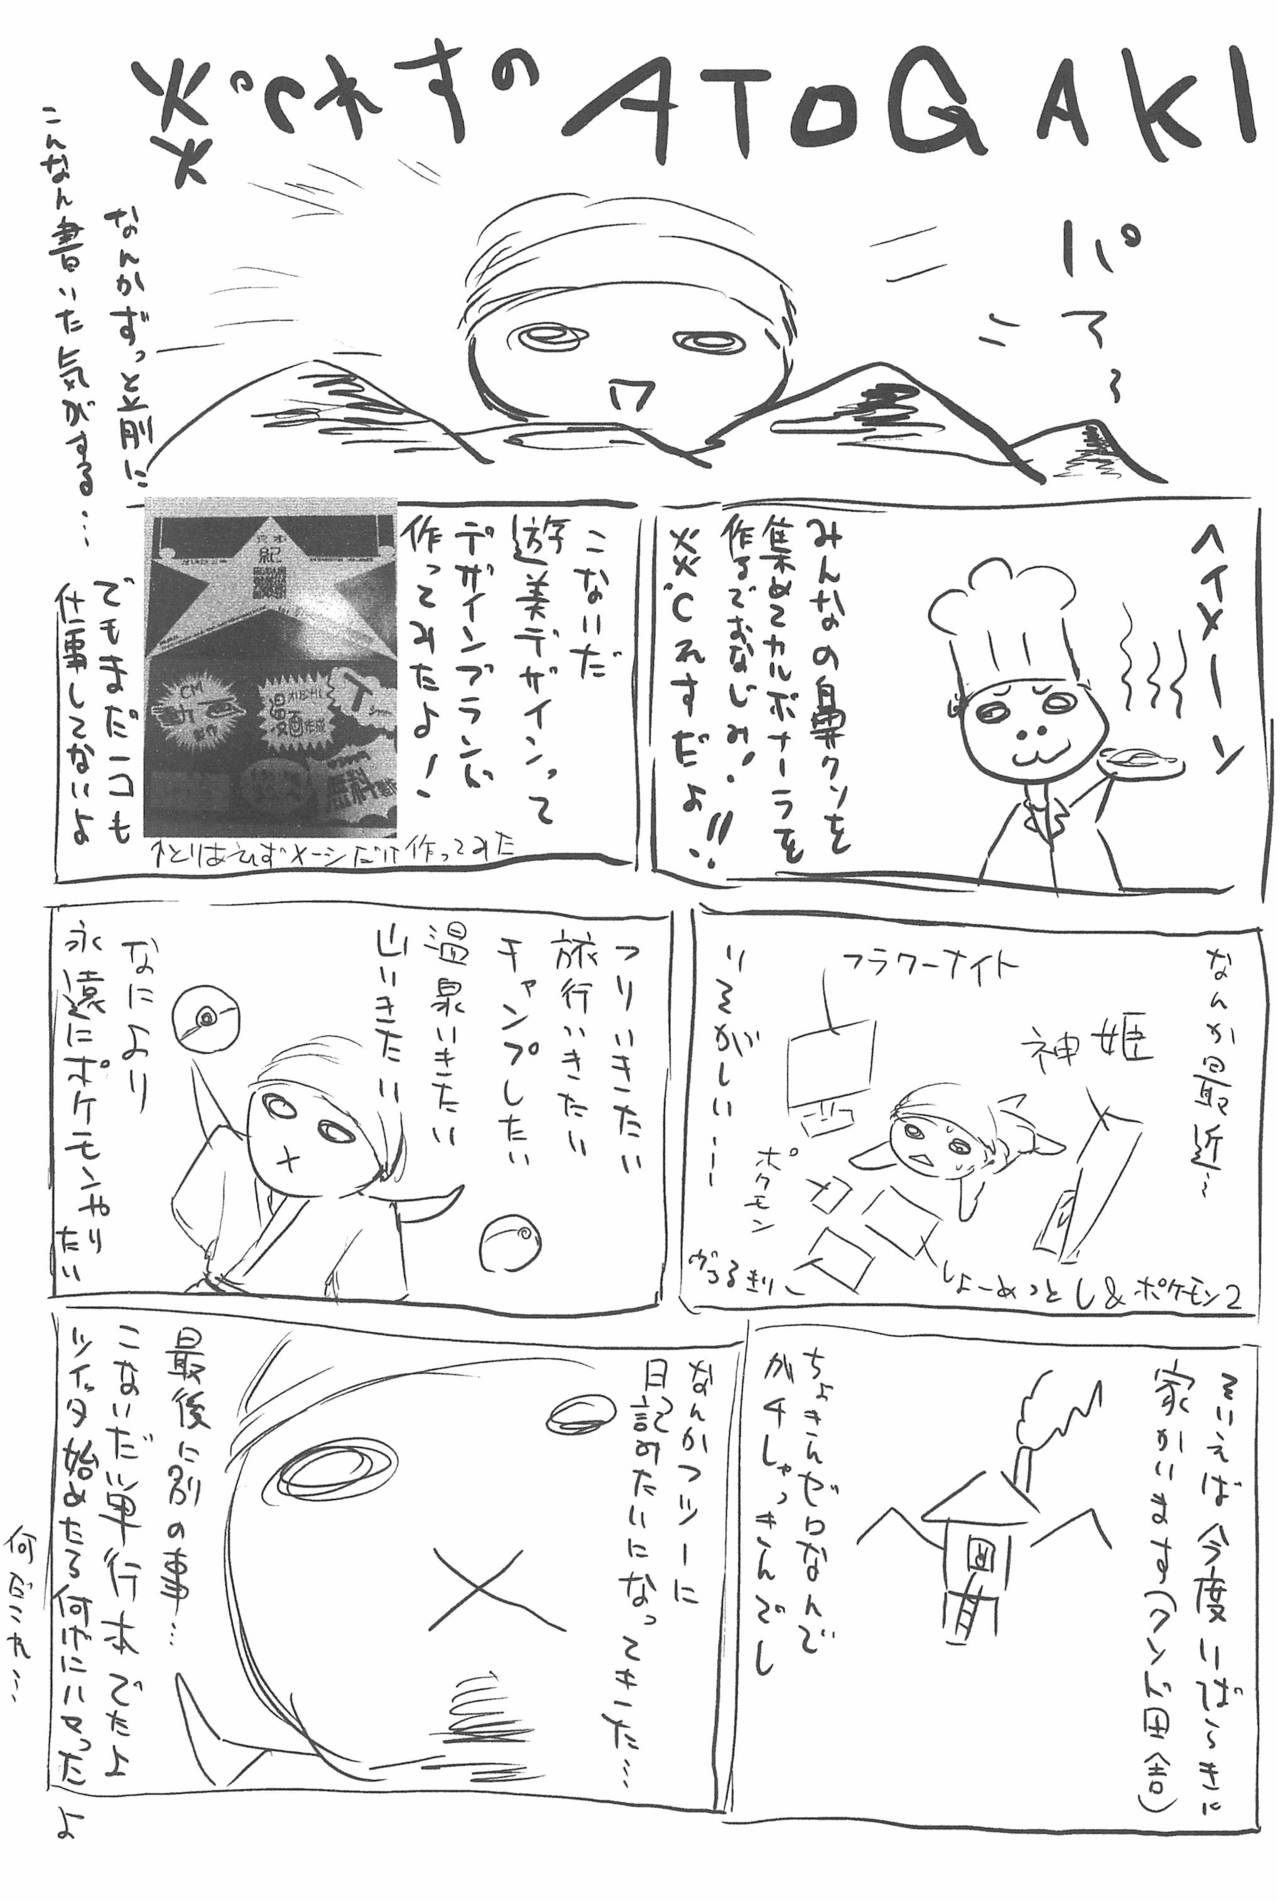 炎℃れすのATOGAKI
パァ〜
なんかずっと前に
こんなん書いた気がする…
ヘイメーン
みんなの鼻クソを
集めてカルボナーラを
作るでおなじみ!
炎℃れすだよ!!
こないだ
遊美デザインって
デザインブランド
作ってみたよ!
紀
CM
漫画作成
無料
↑とりあえずメーシだけ作ってみた
でもまだ一コも
仕事してないよ
なんか最近〜
神姫
フラワーナイト
ポケモン
ヴぁるきりー
しょーめっとし&ポケモン2
いそがしいーー
つりいきたい
旅行いきたい
キャンプしたい
温泉いきたい
山いきたい
なにより
永遠にポケモンやり
たい
そいえば今度いばらきに
家かいます(クンド田舎)
ちょきんゼロなんで
ガチしゃっきんでし
なんかフツーに
日記みたいになってきた…
最後に別の事…
こないだ単行本でたよ
ツイッタ始めたら何げにハマったよ
何だこれ…